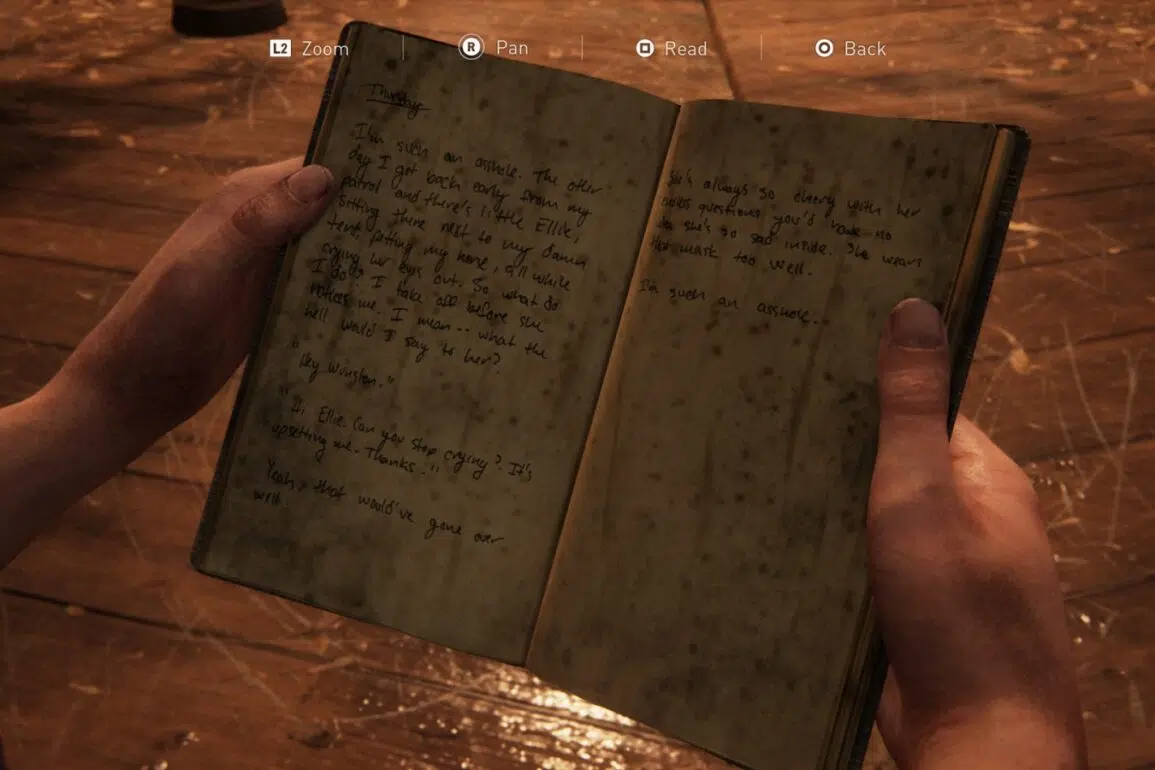 L2 Zoom
R Pan
Read
Back
Thursday
I'm such an asshole. The other
day I got back early from my
patrol and there's little Ellie,
sitting there next to my damn
tent, petting my horse, all while
crying her eyes out. So, what do
I do? I take off before she
notices me. I mean -- what the
hell would I say to her?
"Hey Winston."
"Hi, Ellie. Can you stop crying? It's
upsetting me. Thanks."
Yeah, that would've gone over
well.
She's always so cheery with her
questions you'd have no
she's so sad inside. She wears
that mask too well.
I'm such an asshole.